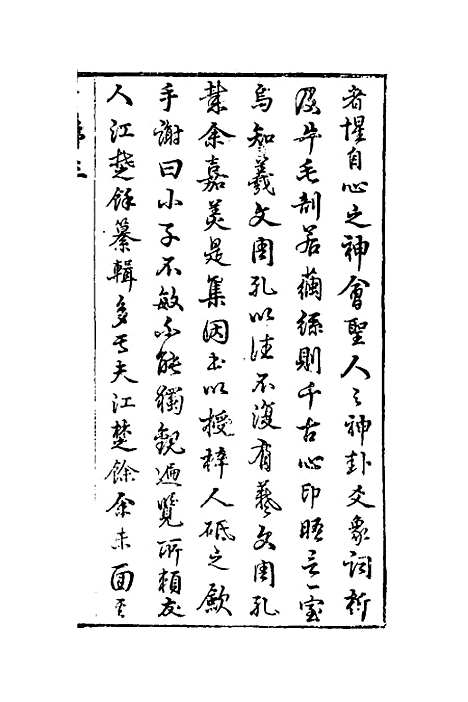 者惺自心之神會聖人之神卦爻象詞析
及牛毛剖若繭絲則千古心印晤言一室
烏知羲文周孔以往不復有羲文周孔
余嘉美是集因書以授梓人砥之歙
手謝曰小子不敏不能獨觀遍覽所賴友
人江楚餘纂輯多焉夫江楚餘余未面